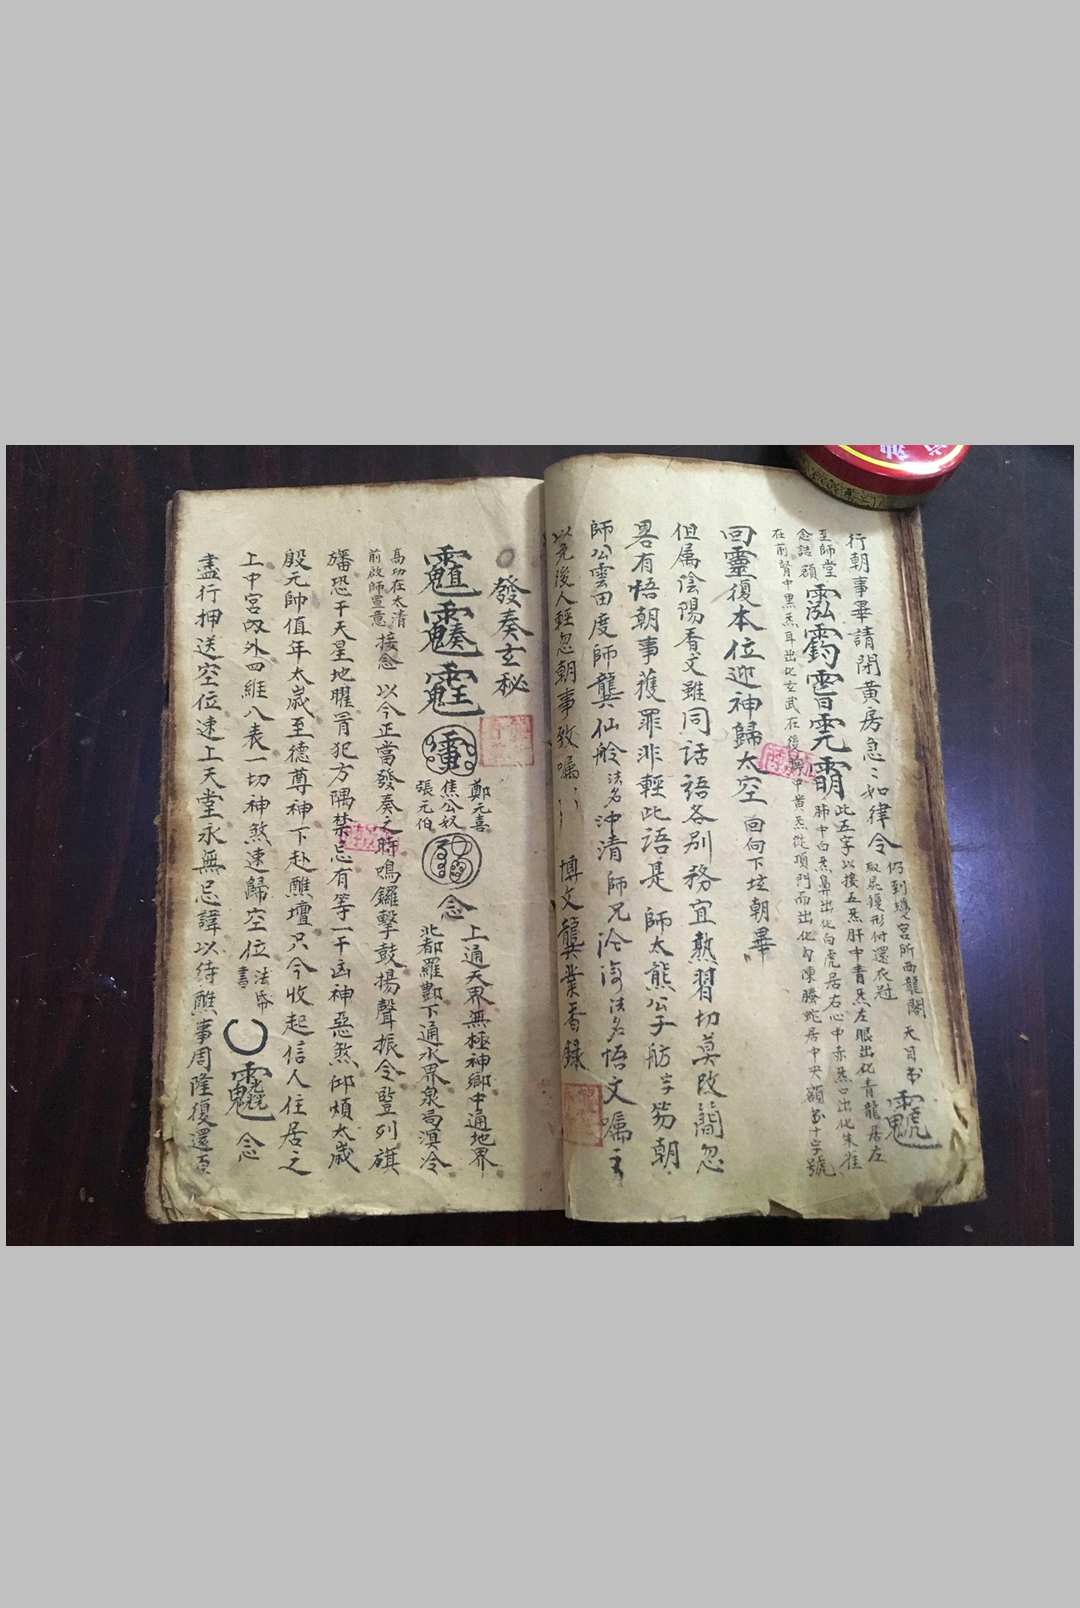 行朝事畢請閉黃房急〻如律令
取屍復形付還衣冠
天目書
至師堂
念諱 額
此五字以接五炁肝中青炁左眼出化青龍居左
肺中白炁鼻出化白虎居右心中赤炁口出化朱雀
在前腎中黑炁耳出化玄武在後脾中黃炁從項門而出化勾陳騰蛇居中央額書十字號
回靈復本位迎神歸太空 回向下坛朝畢
但属陰陽看文雖同話語各別務宜熟習切莫改簡忽
畧有悟朝事獲罪非輕此語是師太熊公子舫
師公雲田度師龔仙舲法名沖清師兄
法名悟文囑
以免後人輕忽朝事致囑
博文龔業香錄
發奏玄秘
鄭元喜
焦公奴
張元伯
念
上通天界無極神鄉中通地界
北都羅酆下通水界泉局溟冷
高功在太清
前啟師置意
接念 以今正當發奏之時鳴鑼擊鼓揚聲振令登列旗
旛恐干天星地曜冐犯方隅禁忌有等一干凶神惡煞邱煩太歲
殷元帥值年太歲至德尊神下赴醮壇只今收起信人住居之
上中宮內外四維八表一切神煞速歸空位
念
盡行押送空位速上天堂永無忌諱以待醮事周隆復還